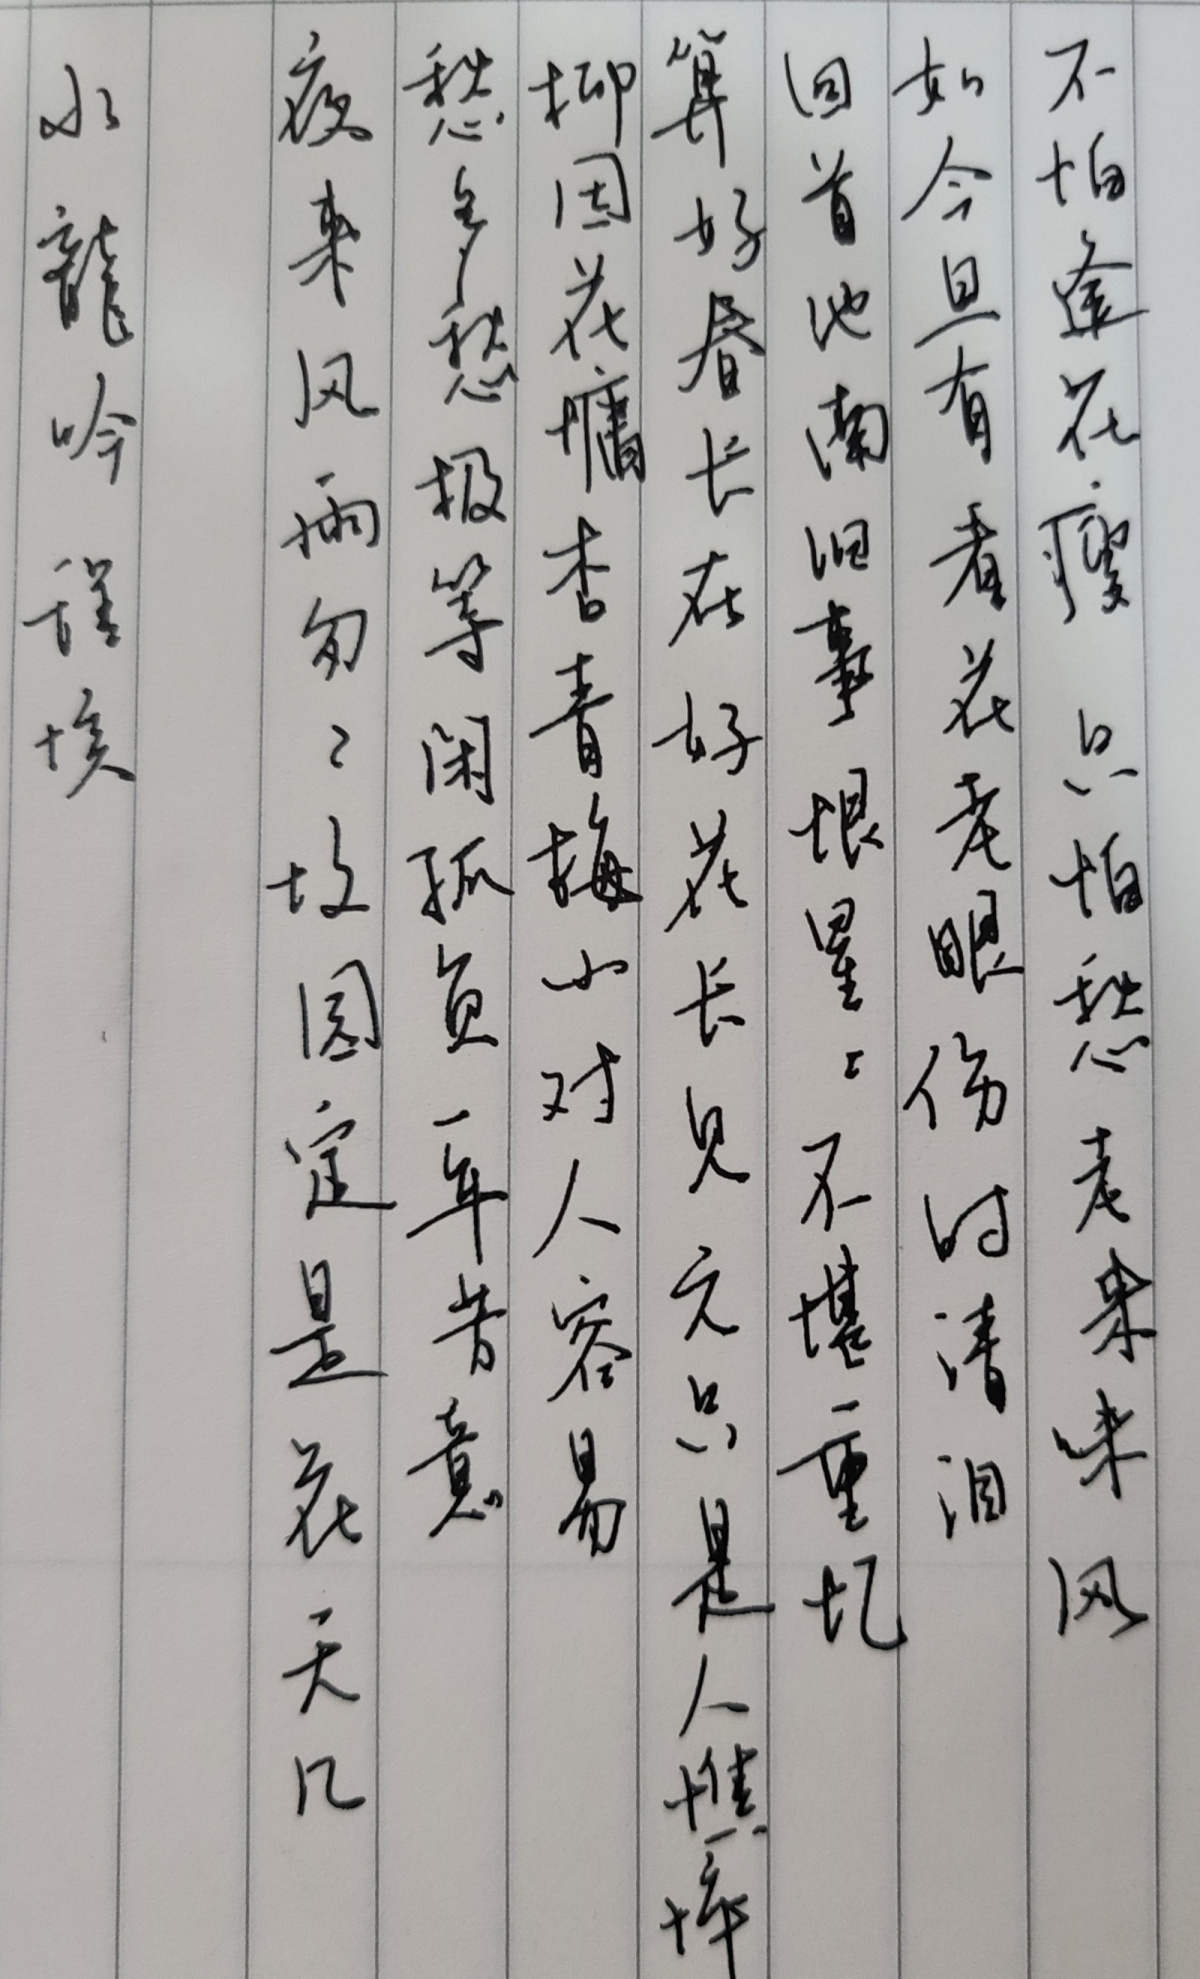 不怕逢花瘦只怕愁老来味风
如今且有看花老眼伤时清泪
回首池南旧事恨星〻不堪重记
算好春长在好花长见元只是人憔悴
抑因花慵杏青梅小对人容易
愁多愁极等闲孤负一年芳意
夜来风雨匆〻故园定是花无几
水龍吟 程垓